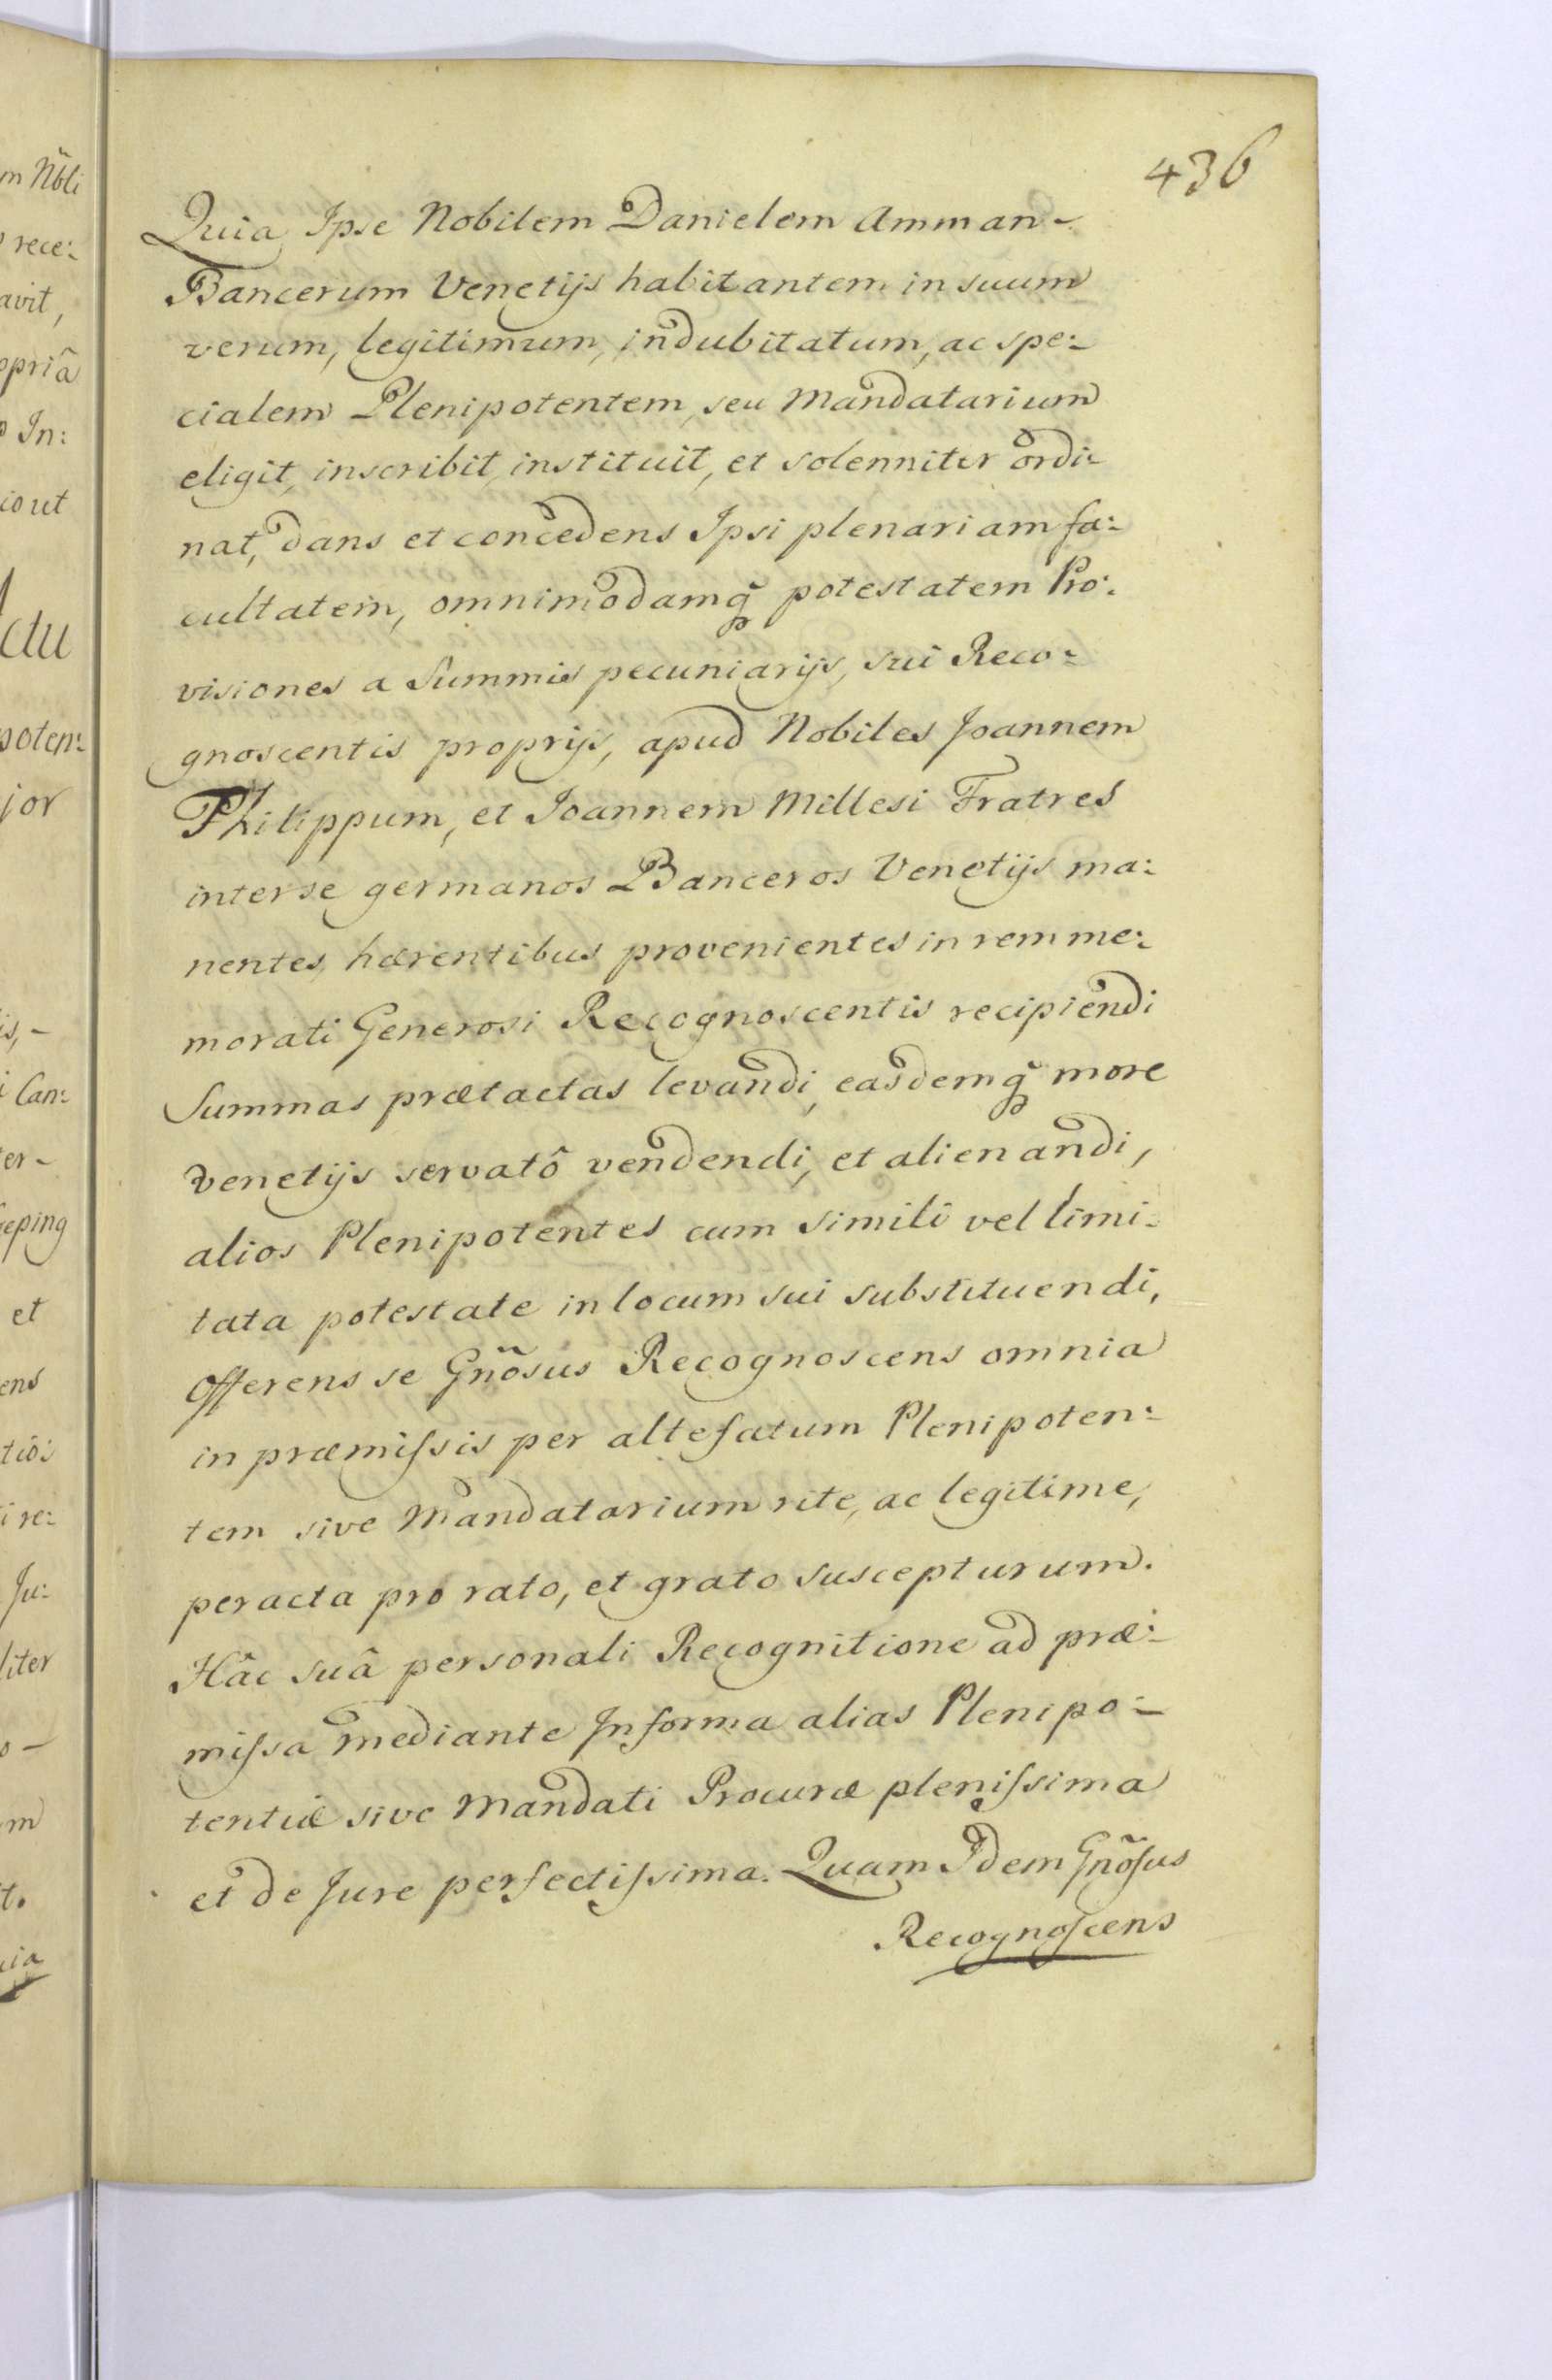 436
Quia Ipse Nobilem Danielem Amman-
Bancerum Venetijs habitantem in suum
verum, legitimum, indubitatum, ac spe:
cialem Plenipotentem, seu Mandatarium
eligit, inscribit, instituit, et solenniter ordi-
nat, dans et concedens Ipsi plenariam fa:
cultatem, omnimodamq̃ potestatem Pro:
visiones a Summis pecuniarijs, sui Reco:
gnoscentis proprijs, apud Nobiles Joannem
Philippum, et Joannem Millesi Fratres
inter se germanos Banceros Venetijs ma:
nentes, hærentibus provenientes in rem me:
morati Generosi Recognoscentis recipiendi
Summas prætactas levandi, easdemq̃ more
Venetijs servatô vendendi, et alienandi,
alios Plenipotentes cum simili vel limi:
tata potestate in locum sui substituendi,
Offerens se Gnõsus Recognoscens omnia
in præmiſsis per altefatum Plenipoten:
tem sive Mandatarium rite, ac legitime,
peracta pro rato, et grato suscepturum.
Hâc suâ personali Recognitione ad præ:
miſsa mediante In forma alias Plenipo:
tentiæ sive Mandati Procuræ pleniſsima
et de Jure perfectiſsima. Quam Idem Gnõſus
Recognoſcens
m Nb̃li
rece:
avit,
opriâ
In:
co ut
ctu
poten:
jor
is,-
i Can:
er-
geping
et
ens
tio:
i re:
Ju:
liter
o-
m
t.
uia